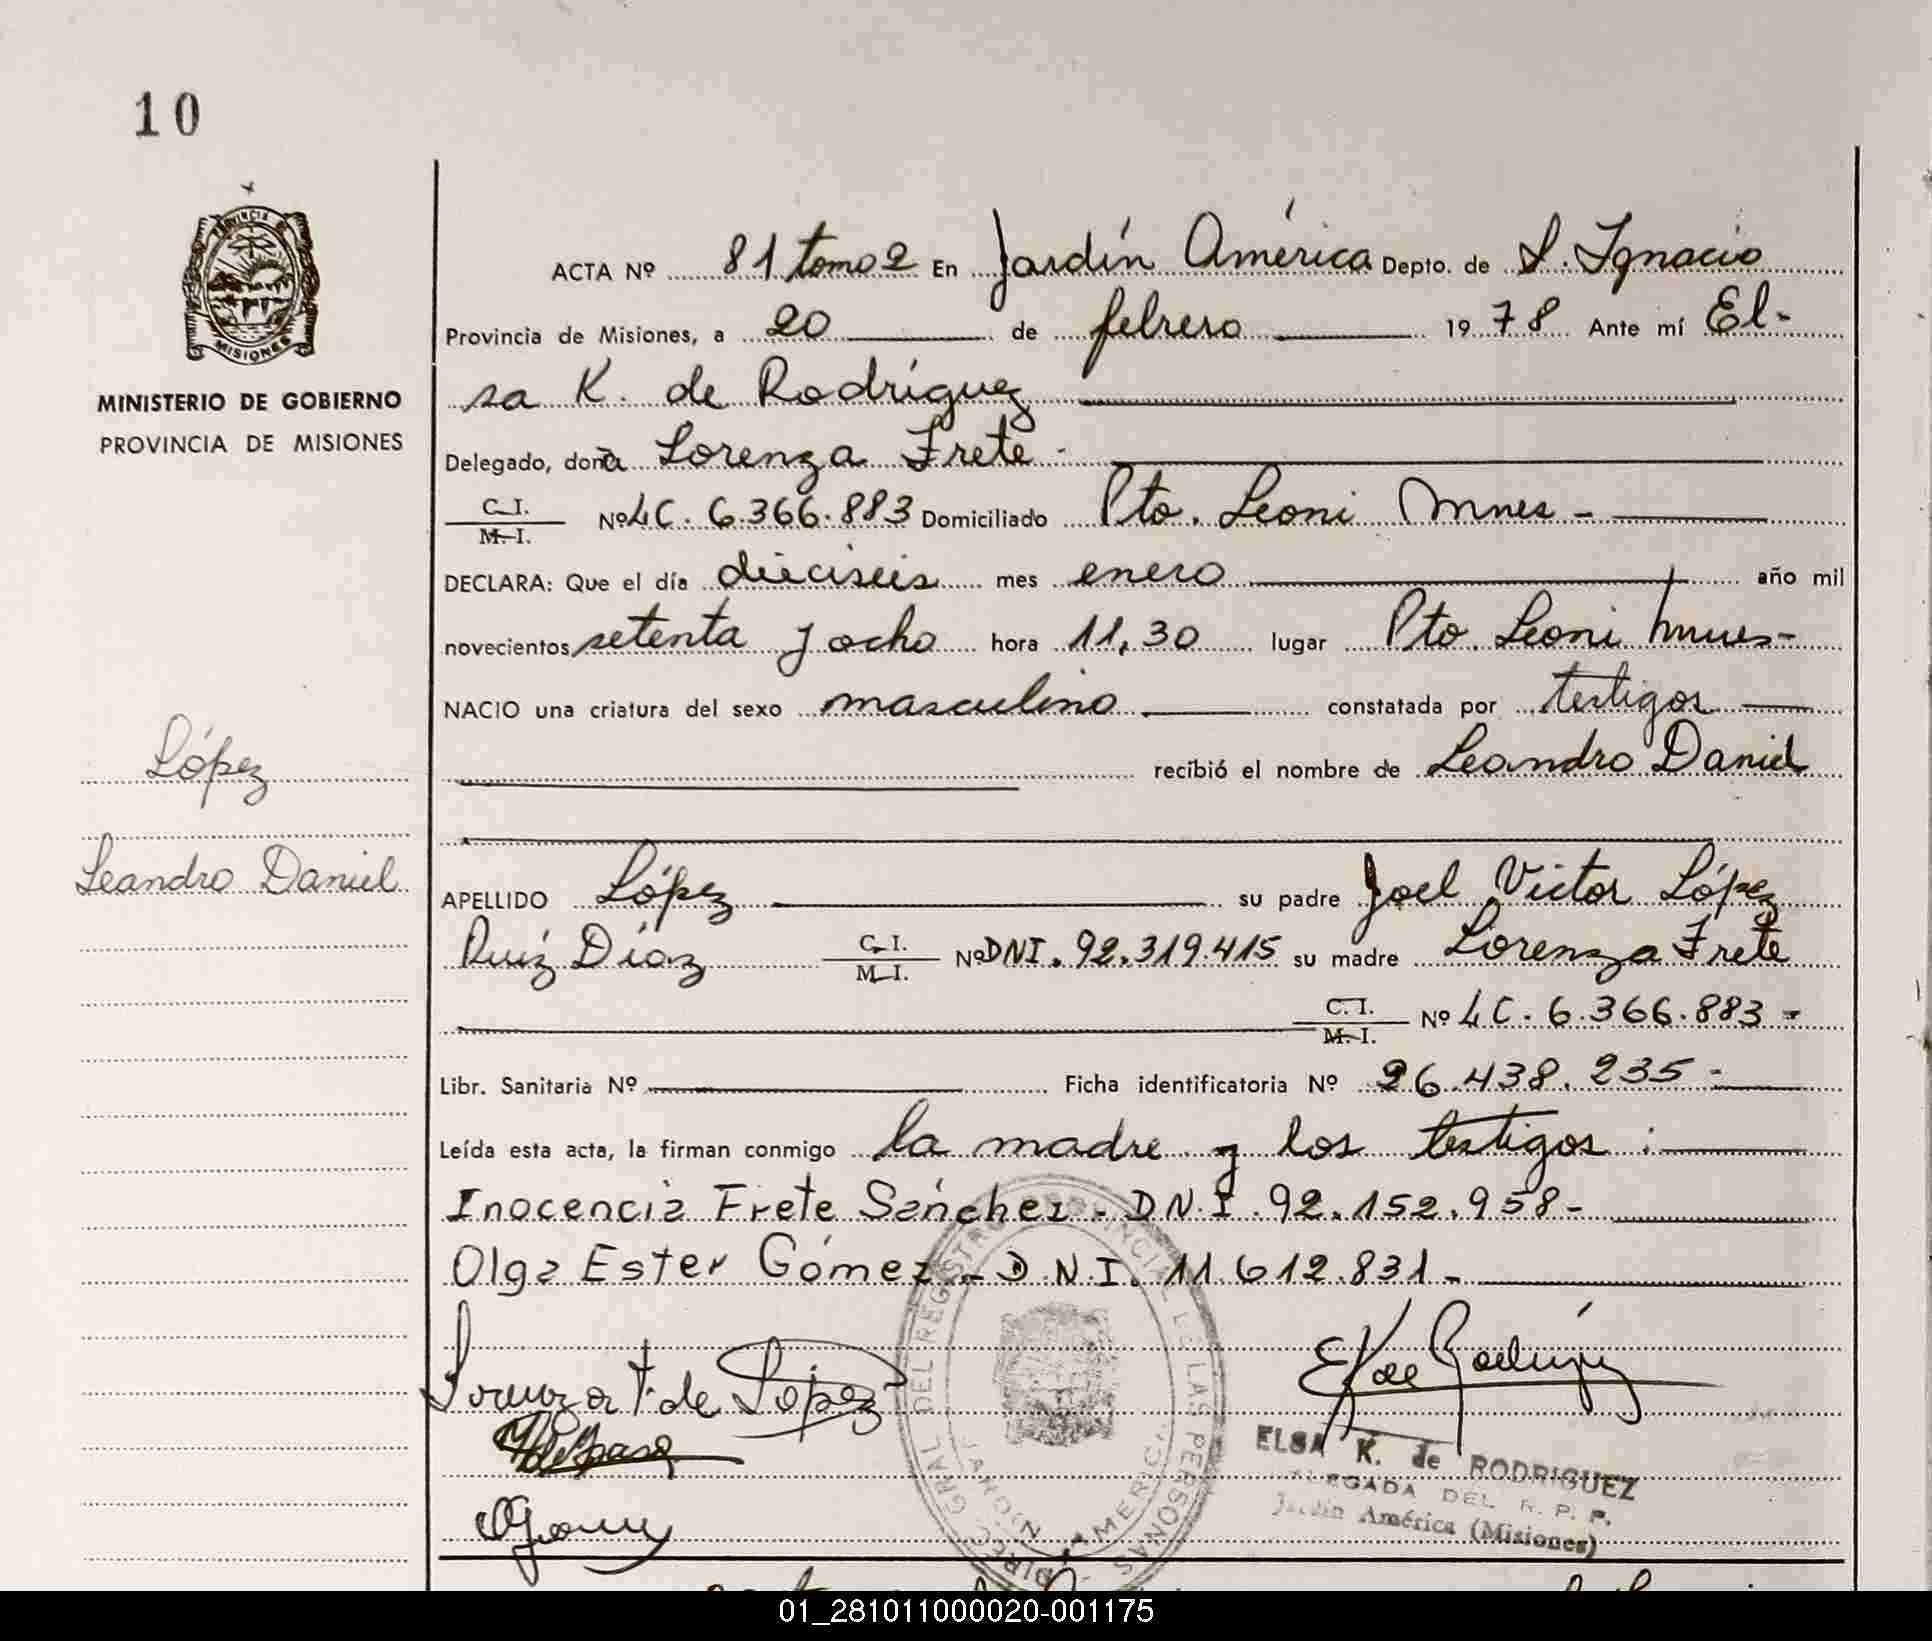 10
PROVINCIA DE
MISIONES
MINISTERIO DE GOBIERNO
PROVINCIA DE MISIONES
López
Leandro Daniel
ACTA Nº 81 tomo 2 En Jardín América Depto. de S. Ignacio
Provincia de Misiones, a 20 de febrero 1978 Ante mí El-
sa K. de Rodríguez
Delegado, doña Lorenza Frete -
C.I.
M.I. Nº LC. 6.366.883 Domiciliado Pto. Leoni Mnes -
DECLARA: Que el día dieciseis mes enero año mil
novecientos setenta y ocho hora 11,30 lugar Pto Leoni Mnes-
NACIO una criatura del sexo masculino constatada por testigos
recibió el nombre de Leandro Daniel
APELLIDO López su padre Joel Victor López
Ruíz Díaz C.I. M.I. Nº DNI. 92.319.415 su madre Lorenza Frete
C.I. M.I. Nº LC. 6.366.883 -
Libr. Sanitaria Nº Ficha identificatoria Nº 26.438.235 -
Leída esta acta, la firman conmigo la madre y los testigos :
Inocencia Frete Sánchez - DN.I. 92.152.958-
Olga Ester Gómez - D.N.I. 11.612.831 -
Lorenza F. de López
EK de Rodríguez
DIREC. GRAL. DEL REGISTRO PROVINCIAL DE LAS PERSONAS
JARDIN AMERICA
ELSA K. de RODRIGUEZ
DELEGADA DEL R. P. P.
Jardín América (Misiones)
OGomez
01_281011000020-001175